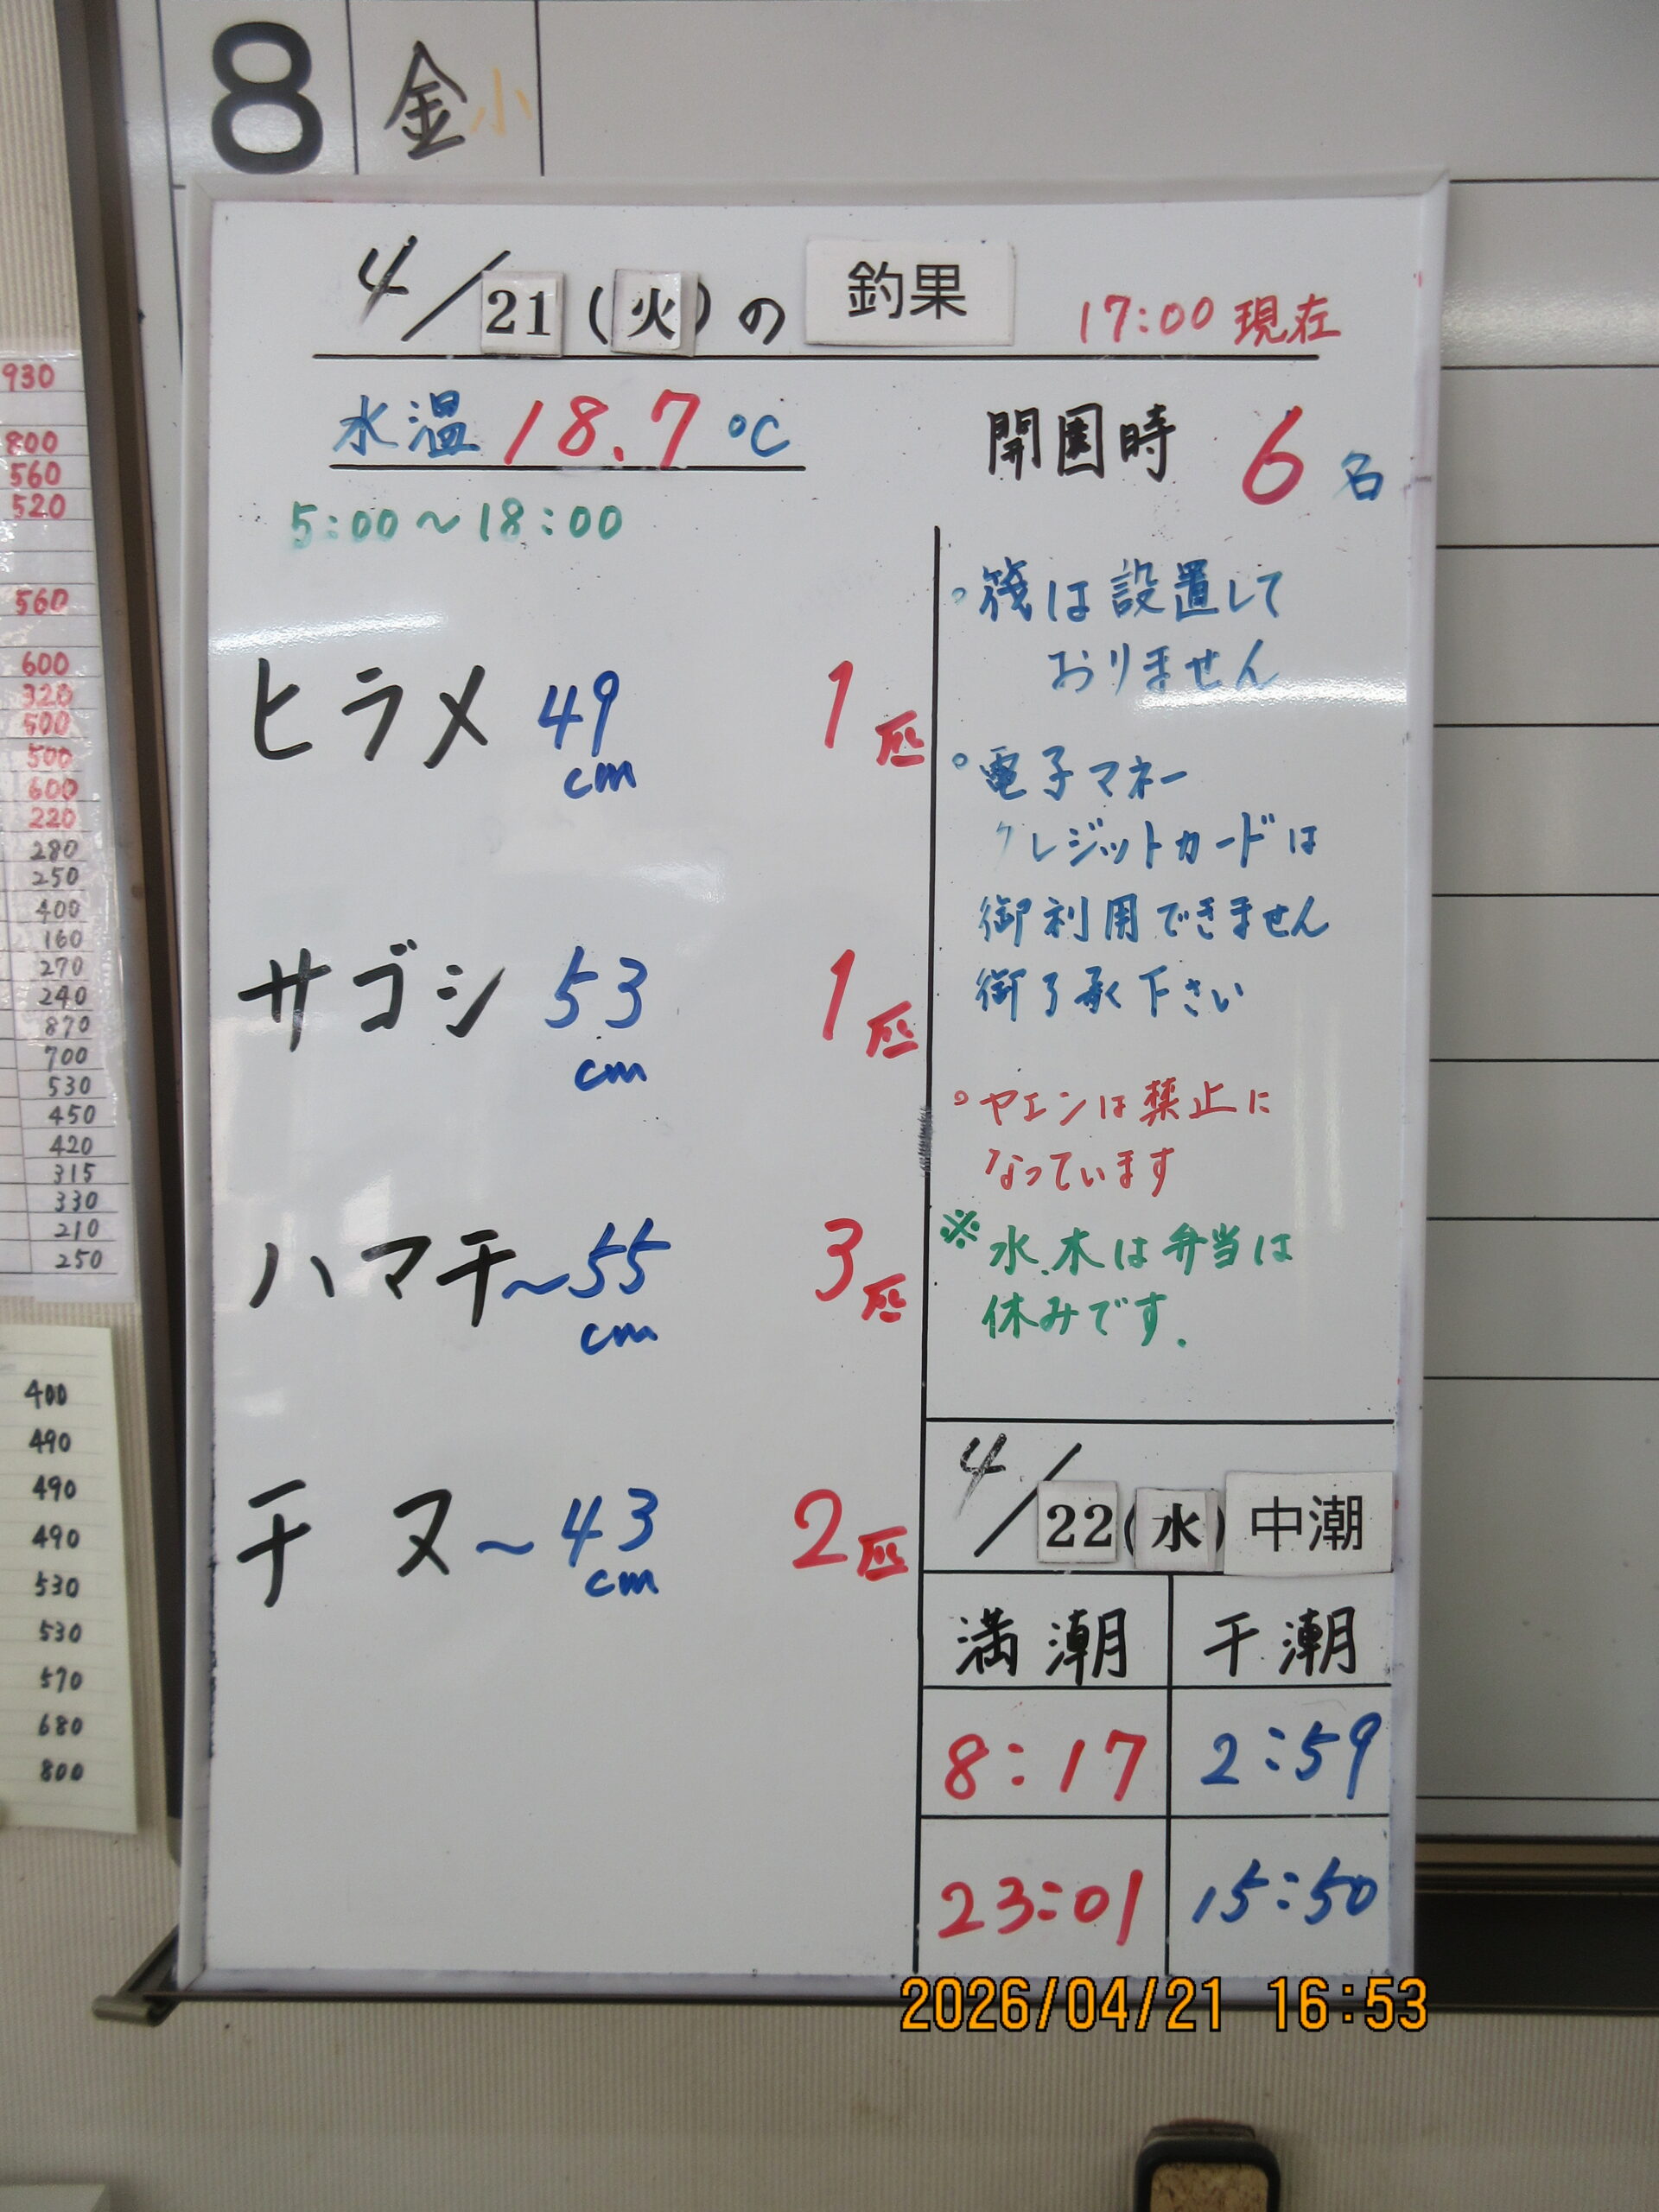 8 金 小
4/21(火)の 釣果 17:00 現在
水温 18.7 ℃
開園時 6 名
5:00〜18:00
ヒラメ 49cm 1匹
サゴシ 53cm 1匹
ハマチ〜55cm 3匹
チヌ〜43cm 2匹
。筏は設置して
おりません
。電子マネー
クレジットカードは
御利用できません
御了承下さい
。ヤエンは禁止に
なっています
※水.木は弁当は
休みです.
4/22(水) 中潮
満潮 干潮
8:17 2:59
23:01 15:50
930
800
560
520
560
600
320
500
500
600
220
280
250
400
160
270
240
870
700
530
450
420
315
330
210
250
400
490
490
490
530
530
570
680
800
2026/04/21 16:53